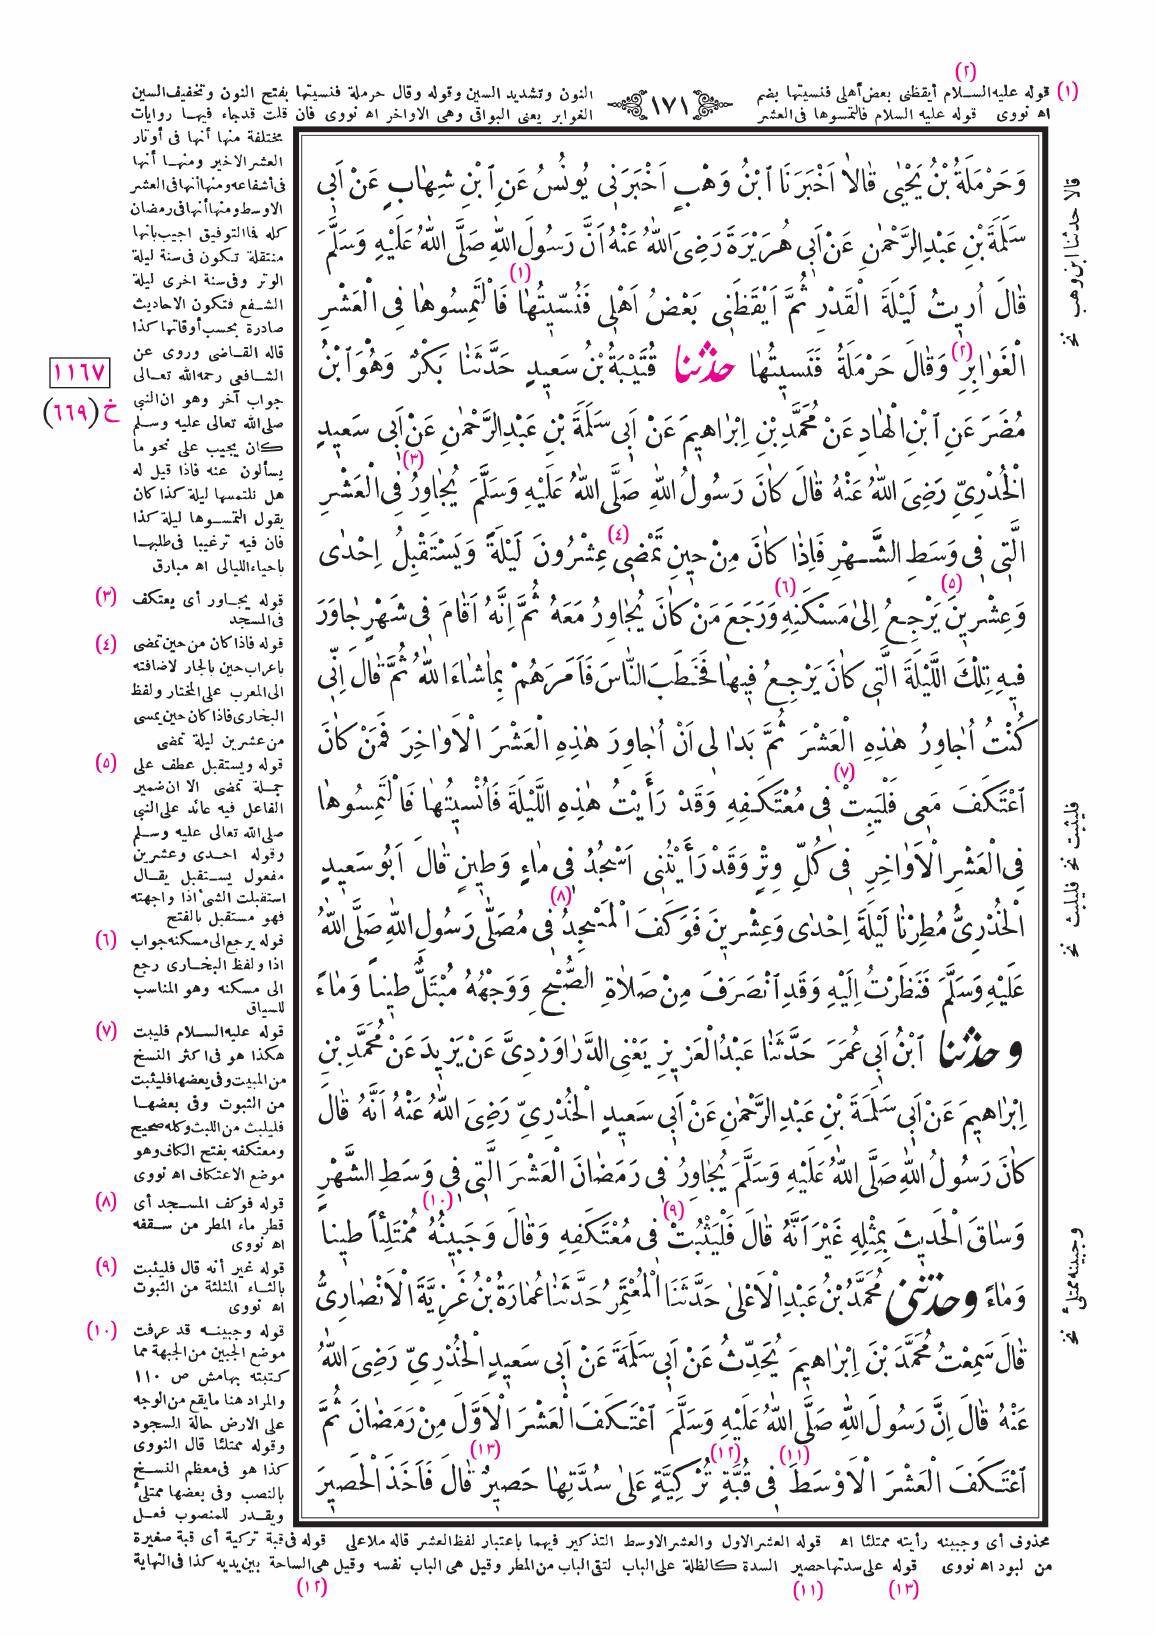 (٢)
(١) قوله عليه السلام أيقظنى بعض أهلى فنسيتها بضم
النون وتشديد السين وقوله وقال حرملة فنسيتها بفتح النون وتخفيف السين
اه نووى قوله عليه السلام فالتمسوها فى العشر
الغوابر يعنى البواقى وهى الاواخر اه نووى فان قلت قدجاء فيها روايات
١٧١
وَحَرْمَلَةُ بْنُ يَحْيٰى قَالاَ اَخْبَرَنَا ابْنُ وَهْبٍ اَخْبَرَنِى يُونُسُ عَنِ ابْنِ شِهَابٍ عَنْ اَبِى
سَلَمَةَ بْنِ عَبْدِالرَّحْمٰنِ عَنْ اَبِى هُرَيْرَةَ رَضِىَ اللّٰهُ عَنْهُ اَنَّ رَسُولَ اللّٰهِ صَلَّى اللّٰهُ عَلَيْهِ وَسَلَّمَ
قَالَ اُرِيتُ لَيْلَةَ الْقَدْرِ ثُمَّ اَيْقَظَنِى بَعْضُ اَهْلِى فَنُسِّيتُهَا (١) فَالْتَمِسُوهَا فِى الْعَشْرِ
الْغَوَابِرِ (٢) وَقَالَ حَرْمَلَةُ فَنَسِيتُهَا حَدَّثَنَا قُتَيْبَةُ بْنُ سَعِيدٍ حَدَّثَنَا بَكْرٌ وَهُوَ ابْنُ
مُضَرَ عَنِ ابْنِ الْهَادِ عَنْ مُحَمَّدِ بْنِ اِبْرَاهِيمَ عَنْ اَبِى سَلَمَةَ بْنِ عَبْدِالرَّحْمٰنِ عَنْ اَبِى سَعِيدٍ
الْخُدْرِىِّ رَضِىَ اللّٰهُ عَنْهُ قَالَ كَانَ رَسُولُ اللّٰهِ صَلَّى اللّٰهُ عَلَيْهِ وَسَلَّمَ يُجَاوِرُ (٣) فِى الْعَشْرِ
الَّتِى فِى وَسَطِ الشَّهْرِ فَاِذَا كَانَ مِنْ حِينِ تَمْضِى (٤) عِشْرُونَ لَيْلَةً وَيَسْتَقْبِلُ اِحْدٰى
وَعِشْرِينَ (٥) يَرْجِعُ اِلٰى مَسْكَنِهِ (٦) وَرَجَعَ مَنْ كَانَ يُجَاوِرُ مَعَهُ ثُمَّ اِنَّهُ اَقَامَ فِى شَهْرٍ جَاوَرَ
فِيهِ تِلْكَ اللَّيْلَةَ الَّتِى كَانَ يَرْجِعُ فِيهَا فَخَطَبَ النَّاسَ فَاَمَرَهُمْ بِمَا شَاءَ اللّٰهُ ثُمَّ قَالَ اِنِّى
كُنْتُ اُجَاوِرُ هٰذِهِ الْعَشْرَ ثُمَّ بَدَا لِى اَنْ اُجَاوِرَ هٰذِهِ الْعَشْرَ الْاَوَاخِرَ فَمَنْ كَانَ
اعْتَكَفَ مَعِى فَلْيَبِتْ (٧) فِى مُعْتَكَفِهِ وَقَدْ رَأَيْتُ هٰذِهِ اللَّيْلَةَ فَاُنْسِيتُهَا فَالْتَمِسُوهَا
فِى الْعَشْرِ الْاَوَاخِرِ فِى كُلِّ وِتْرٍ وَقَدْ رَأَيْتُنِى اَسْجُدُ فِى مَاءٍ وَطِينٍ قَالَ اَبُو سَعِيدٍ
الْخُدْرِىُّ مُطِرْنَا لَيْلَةَ اِحْدٰى وَعِشْرِينَ فَوَكَفَ الْمَسْجِدُ (٨) فِى مُصَلّٰى رَسُولِ اللّٰهِ صَلَّى اللّٰهُ
عَلَيْهِ وَسَلَّمَ فَنَظَرْتُ اِلَيْهِ وَقَدِ انْصَرَفَ مِنْ صَلَاةِ الصُّبْحِ وَوَجْهُهُ مُبْتَلٌّ طِيناً وَمَاءً
وَحَدَّثَنَا ابْنُ اَبِى عُمَرَ حَدَّثَنَا عَبْدُالْعَزِيزِ يَعْنِى الدَّرَاوَرْدِىَّ عَنْ يَزِيدَ عَنْ مُحَمَّدِ بْنِ
اِبْرَاهِيمَ عَنْ اَبِى سَلَمَةَ بْنِ عَبْدِالرَّحْمٰنِ عَنْ اَبِى سَعِيدٍ الْخُدْرِىِّ رَضِىَ اللّٰهُ عَنْهُ اَنَّهُ قَالَ
كَانَ رَسُولُ اللّٰهِ صَلَّى اللّٰهُ عَلَيْهِ وَسَلَّمَ يُجَاوِرُ فِى رَمَضَانَ الْعَشْرَ الَّتِى فِى وَسَطِ الشَّهْرِ
وَسَاقَ الْحَدِيثَ بِمِثْلِهِ غَيْرَ اَنَّهُ قَالَ فَلْيَثْبُتْ (٩) فِى مُعْتَكَفِهِ وَقَالَ وَجَبِينُهُ (١٠) مُمْتَلِئاً طِيناً
وَمَاءً وَحَدَّثَنِى مُحَمَّدُ بْنُ عَبْدِالْاَعْلٰى حَدَّثَنَا الْمُعْتَمِرُ حَدَّثَنَا عُمَارَةُ بْنُ غَزِيَّةَ الْاَنْصَارِىُّ
قَالَ سَمِعْتُ مُحَمَّدَ بْنَ اِبْرَاهِيمَ يُحَدِّثُ عَنْ اَبِى سَلَمَةَ عَنْ اَبِى سَعِيدٍ الْخُدْرِىِّ رَضِىَ اللّٰهُ
عَنْهُ قَالَ اِنَّ رَسُولَ اللّٰهِ صَلَّى اللّٰهُ عَلَيْهِ وَسَلَّمَ اعْتَكَفَ الْعَشْرَ الْاَوَّلَ مِنْ رَمَضَانَ ثُمَّ
اعْتَكَفَ الْعَشْرَ الْاَوْسَطَ (١١) فِى قُبَّةٍ تُرْكِيَّةٍ (١٢) عَلٰى سُدَّتِهَا حَصِيرٌ (١٣) قَالَ فَاَخَذَ الْحَصِيرَ
قالا حدثنا ابن وهب نخ
فليثبت نخ فليلبث نخ
وجبينه ممتلئ نخ
١١٦٧
خ (٦٦٩)
مختلفة منها أنها فى أوتار
العشر الاخير ومنها أنها
فى أشفاعه ومنها أنها فى العشر
الاوسط ومنها أنها فى رمضان
كله فما التوفيق اجيب بانها
منتقلة تكون فى سنة ليلة
الوتر وفى سنة اخرى ليلة
الشفع فتكون الاحاديث
صادرة بحسب أوقاتها كذا
قاله القاضى وروى عن
الشافعى رحمه الله تعالى
جواب آخر وهو ان النبى
صلى الله تعالى عليه وسلم
كان يجيب على نحو ما
يسألون عنه فاذا قيل له
هل نلتمسها ليلة كذا كان
يقول التمسوها ليلة كذا
فان فيه ترغيبا فى طلبها
باحياء الليالى اه مبارق
(٣) قوله يجاور أى يعتكف
فى المسجد
(٤) قوله فاذا كان من حين تمضى
باعراب حين بالجار لاضافته
الى المعرب على المختار ولفظ
البخارى فاذا كان حين يمسى
من عشرين ليلة تمضى
(٥) قوله ويستقبل عطف على
جملة تمضى الا ان ضمير
الفاعل فيه عائد على النبى
صلى الله تعالى عليه وسلم
وقوله احدى وعشرين
مفعول يستقبل يقال
استقبلت الشىء اذا واجهته
فهو مستقبل بالفتح
(٦) قوله يرجع الى مسكنه جواب
اذا ولفظ البخارى رجع
الى مسكنه وهو المناسب
للسياق
(٧) قوله عليه السلام فليبت
هكذا هو فى اكثر النسخ
من المبيت وفى بعضها فليثبت
من الثبوت وفى بعضها
فليلبث من اللبث وكله صحيح
ومعتكفه بفتح الكاف وهو
موضع الاعتكاف اه نووى
(٨) قوله فوكف المسجد أى
قطر ماء المطر من سقفه
اه نووى
(٩) قوله غير أنه قال فليثبت
بالثاء المثلثة من الثبوت
اه نووى
(١٠) قوله وجبينه قد عرفت
موضع الجبين من الجبهة مما
كتبته بهامش ص ١١٠
والمراد هنا ما يقع من الوجه
على الارض حالة السجود
وقوله ممتلئا قال النووى
كذا هو فى معظم النسخ
بالنصب وفى بعضها ممتلئ
ويقدر للمنصوب فعل
محذوف أى وجبينه رأيته ممتلئا اه قوله العشر الاول والعشر الاوسط التذكير فيهما باعتبار لفظ العشر قاله ملا على قوله فى قبة تركية أى قبة صغيرة
من لبود اه نووى قوله على سدتها حصير السدة كالظلة على الباب لتقى الباب من المطر وقيل هى الباب نفسه وقيل هى الساحة بين يديه كذا فى النهاية
(١٣) (١١) (١٢)